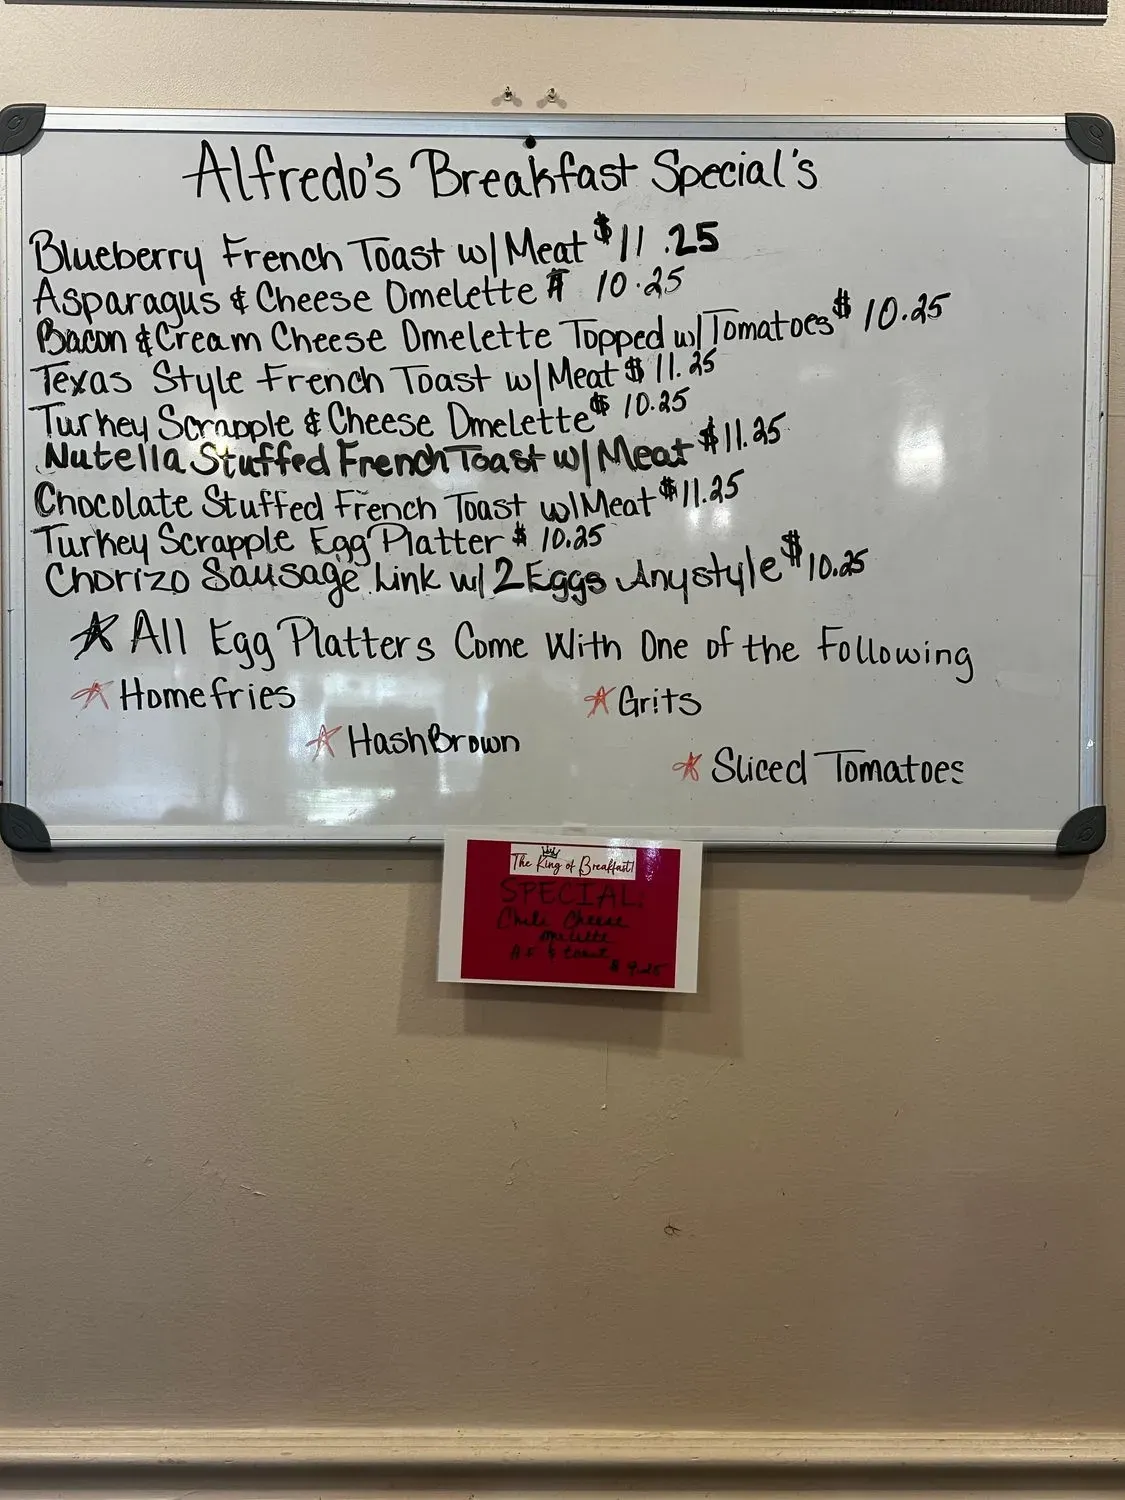 Alfredo's Breakfast Special's
Blueberry French Toast w/ Meat $11.25
Asparagus & Cheese Omelette $ 10.25
Bacon & Cream Cheese Omelette Topped w/ Tomatoes $ 10.25
Texas Style French Toast w/ Meat $ 11.25
Turkey Scrapple & Cheese Omelette $ 10.25
Nutella Stuffed French Toast w/ Meat $11.25
Chocolate Stuffed French Toast w/ Meat $11.25
Turkey Scrapple Egg Platter $ 10.25
Chorizo Sausage Link w/ 2 Eggs Anystyle $10.25
All Egg Platters Come With One of the Following
Homefries
Grits
HashBrown
Sliced Tomatoes
The King of Breakfast!
SPECIAL:
Chili Cheese
omelette
& toast
$ 9.25